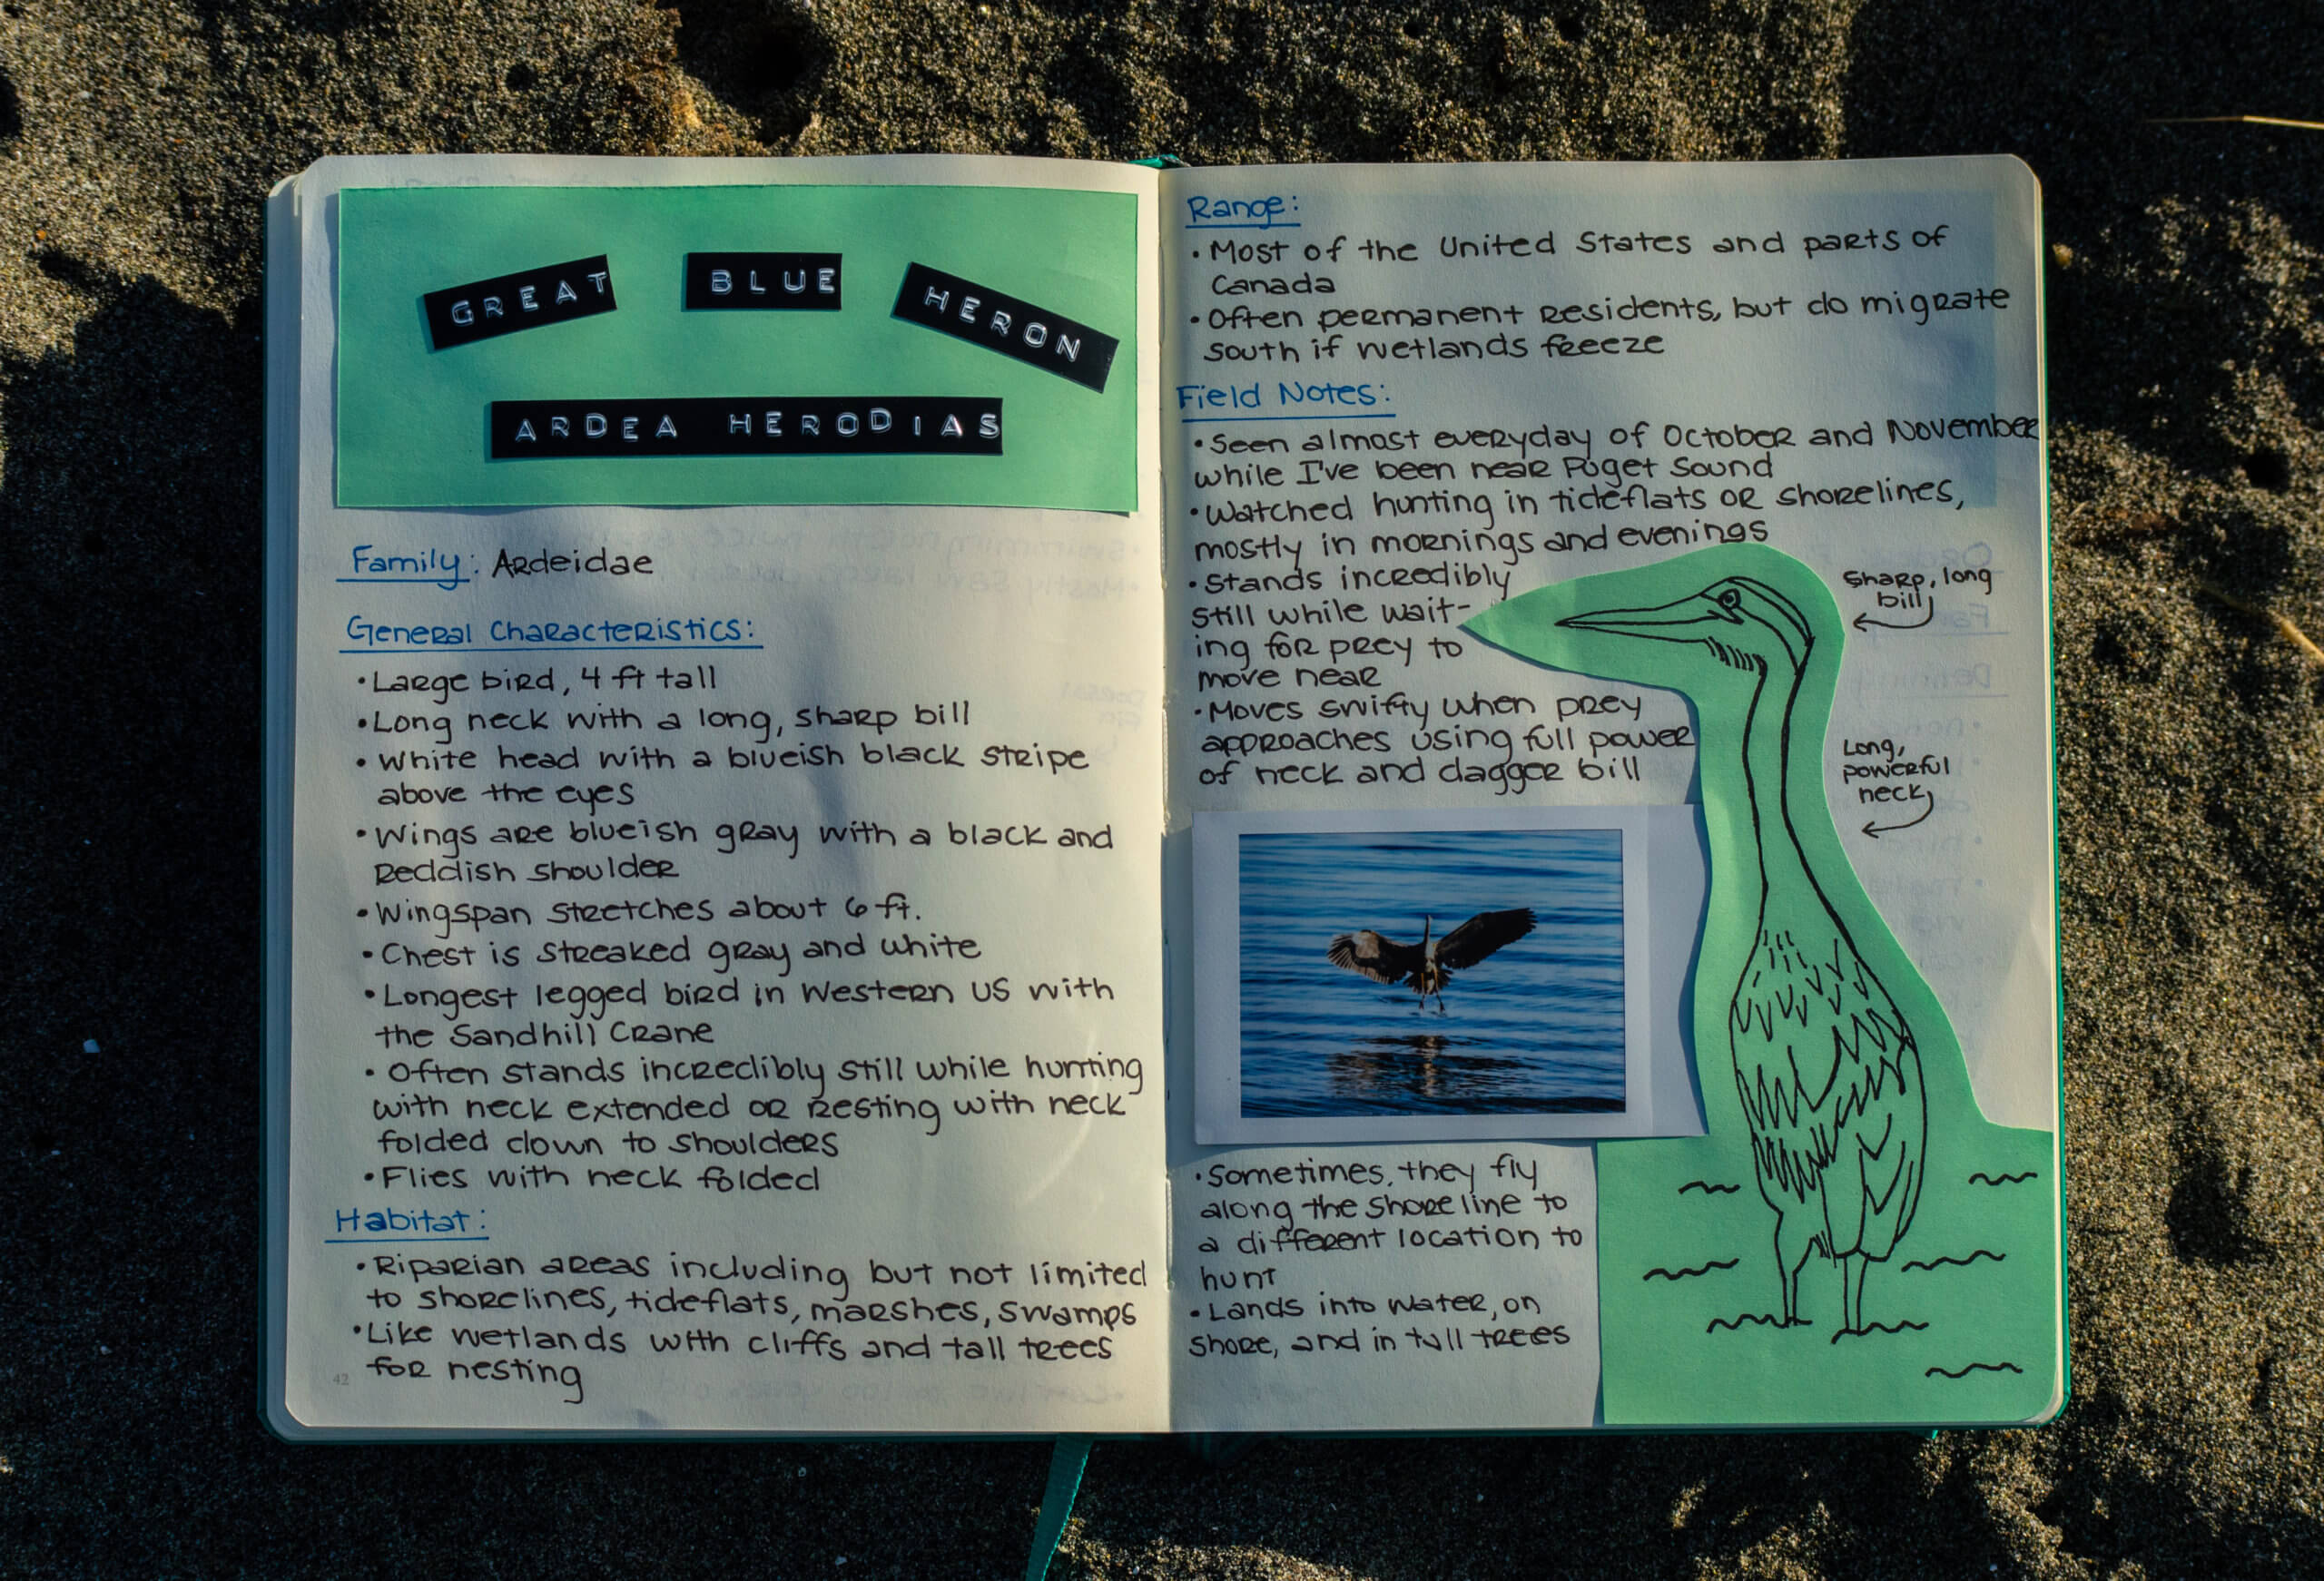 GREAT BLUE HERON
ARDEA HERODIAS
Family: Ardeidae
General Characteristics:
• Large bird, 4 ft tall
• Long neck with a long, sharp bill
• White head with a blueish black stripe
above the eyes
• Wings are blueish gray with a black and
reddish shoulder
• Wingspan stretches about 6 ft.
• Chest is streaked gray and white
• Longest legged bird in Western US with
the Sandhill Crane
• Often stands incredibly still while hunting
with neck extended or resting with neck
folded down to shoulders
• Flies with neck folded
Habitat:
• Riparian areas including but not limited
to shorelines, tideflats, marshes, swamps
• Like wetlands with cliffs and tall trees
for nesting
42
Range:
• Most of the United States and parts of
Canada
• Often permanent residents, but do migrate
south if wetlands freeze
Field Notes:
• Seen almost everyday of October and November
while I've been near Puget Sound
• Watched hunting in tideflats or shorelines,
mostly in mornings and evenings
• Stands incredibly
still while wait-
ing for prey to
move near
• Moves swifty when prey
approaches using full power
of neck and dagger bill
sharp, long
bill
Long,
powerful
neck
• Sometimes, they fly
along the shoreline to
a different location to
hunt
• Lands into water, on
shore, and in tall trees